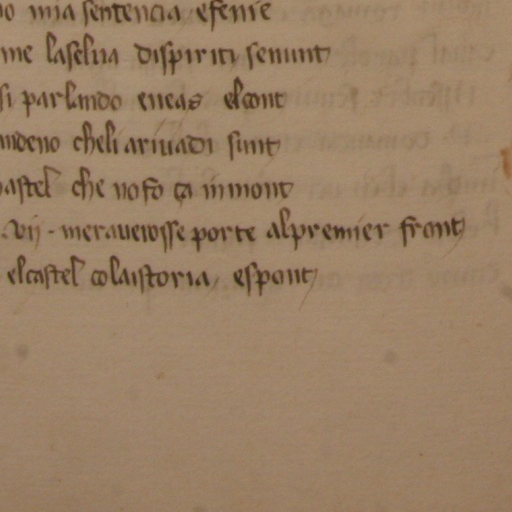 mia sentencia efenie
me laselua dispiriti senunt
si parlando eneas elcont
cheli ariuadi sunt
castel che nofo ça inmont
.vij. meraueiosse porte alpremier front
elcastel colaistoria espont